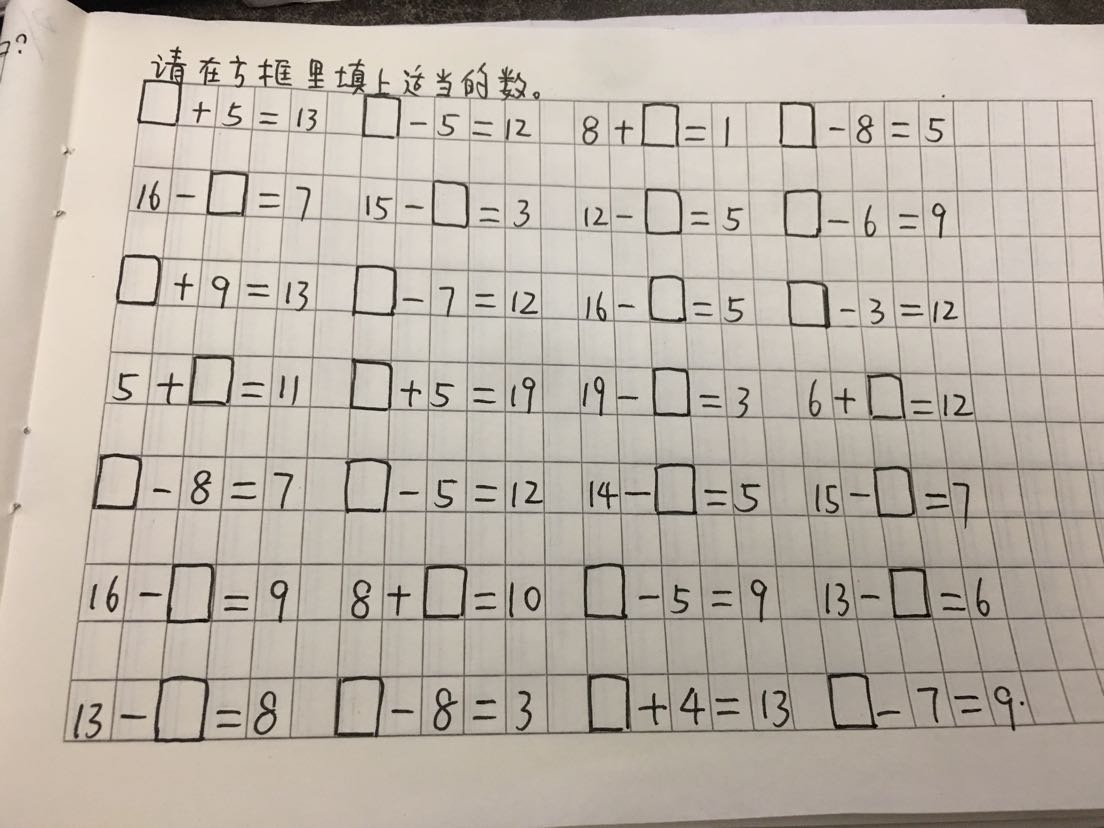 请在方框里填上适当的数。
□+5=13 □-5=12 8+□=1 □-8=5
16-□=7 15-□=3 12-□=5 □-6=9
□+9=13 □-7=12 16-□=5 □-3=12
5+□=11 □+5=19 19-□=3 6+□=12
□-8=7 □-5=12 14-□=5 15-□=7
16-□=9 8+□=10 □-5=9 13-□=6
13-□=8 □-8=3 □+4=13 □-7=9.